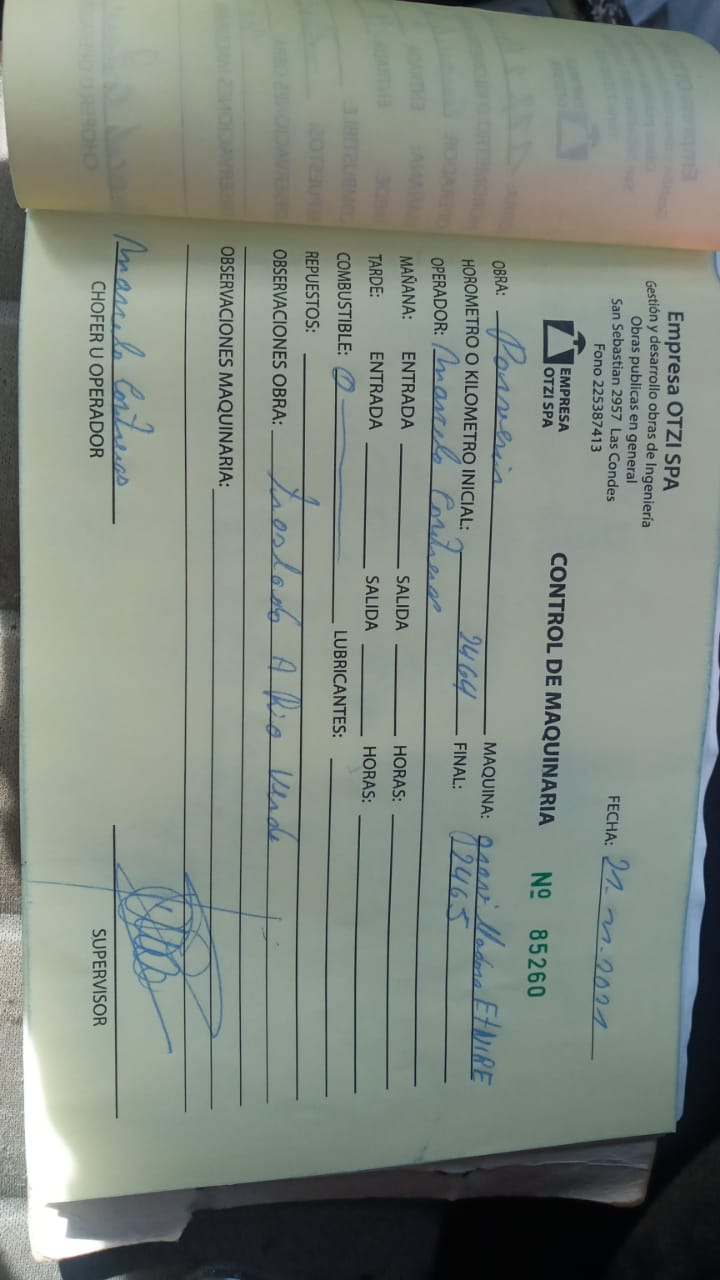 Empresa OTZI SPA
Gestión y desarrollo obras de Ingeniería
Obras publicas en general
San Sebastian 2957 Las Condes
Fono 225387413
FECHA: 21-11-2021
EMPRESA
OTZI SPA
CONTROL DE MAQUINARIA Nº 85260
OBRA: Porvenir MAQUINA: gravilladora EtNIRE
HOROMETRO O KILOMETRO INICIAL: 2464 FINAL: 2465
OPERADOR: Marcelo Contreras
MAÑANA: ENTRADA SALIDA HORAS:
TARDE: ENTRADA SALIDA HORAS:
COMBUSTIBLE: 0 LUBRICANTES:
REPUESTOS:
OBSERVACIONES OBRA: traslado A Rio Verde
OBSERVACIONES MAQUINARIA:
Marcelo Contreras
CHOFER U OPERADOR SUPERVISOR